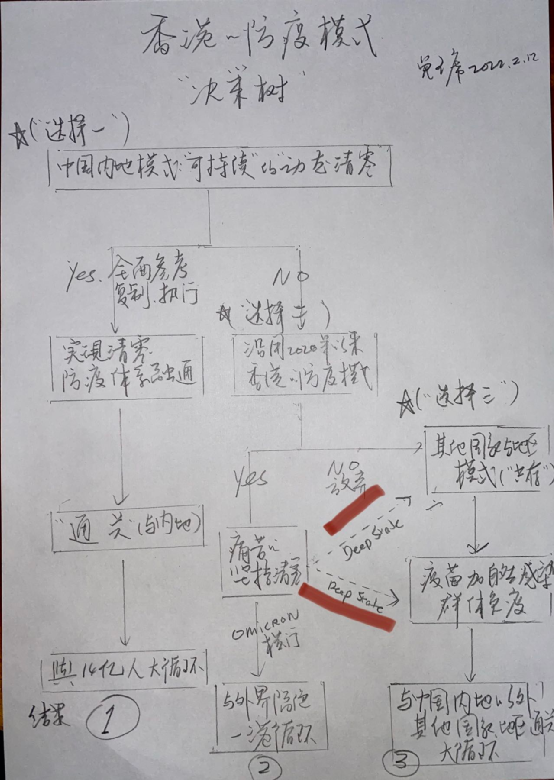 香港的防疫模式
"决策树"
2022.2.12
☆("选择一")
中国内地模式"可持续"的"动态清零"
Yes. 全面参考
复制.执行
NO
☆"选择二")
实现清零
防疫体系融通
沿用2020年以来
香港的防疫模式
☆("选择三")
其他国家与地区
模式("共存")
Yes
NO
放弃
"通关(与内地)
痛苦的
坚持清零
Deep State
Deep State
疫苗加自然感染
群体免疫
OMICRON
横行
与14亿人大循环
与外界隔绝
一港循环
与中国内地以外
其他国家地区通关
大循环
结果
①
②
③